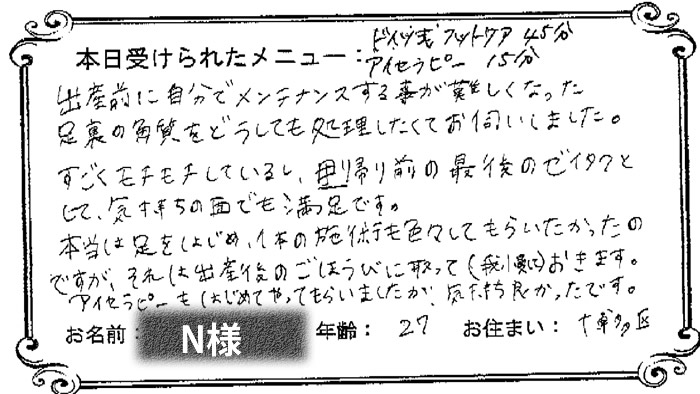 本日受けられたメニュー：ドイツ式フットケア 45分
アイセラピー 15分
出産前に自分でメンテナンスする事が難しくなった
足裏の角質をどうしても処理したくてお伺いしました。
すごくモチモチしているし、里帰り前の最後のゼイタクと
して、気持ちの面でも満足です。
本当は足をはじめ、体の施術も色々してもらいたかったの
ですが、それは出産後のごほうびに取って(我慢し)おきます。
アイセラピーもはじめてやってもらいましたが、気持ち良かったです。
お名前： N様 年齢： 27 お住まい： 博多区